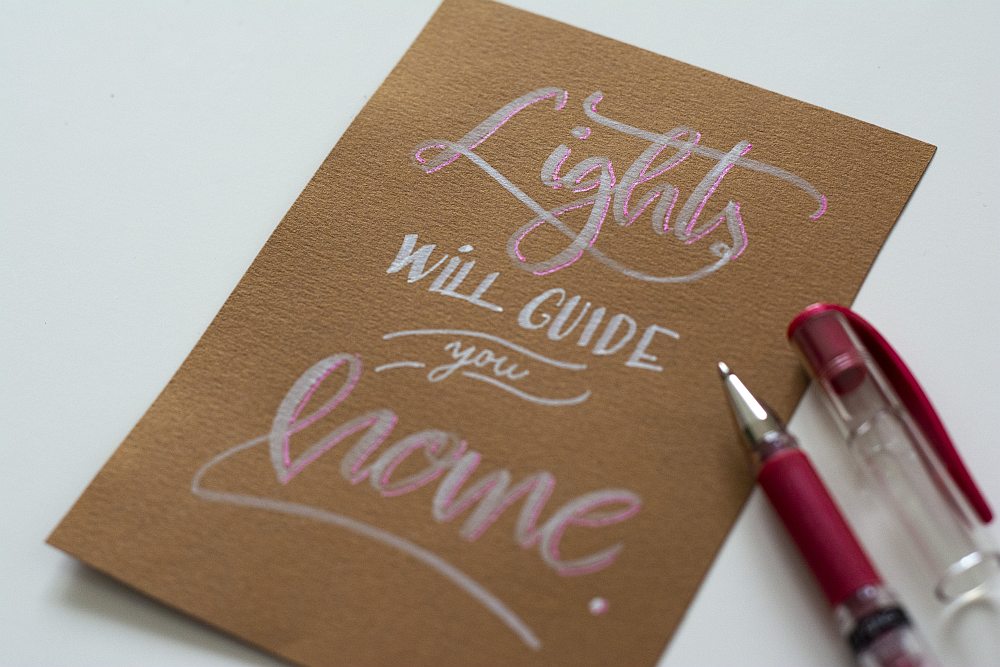 Lights
WILL GUIDE
you
home.